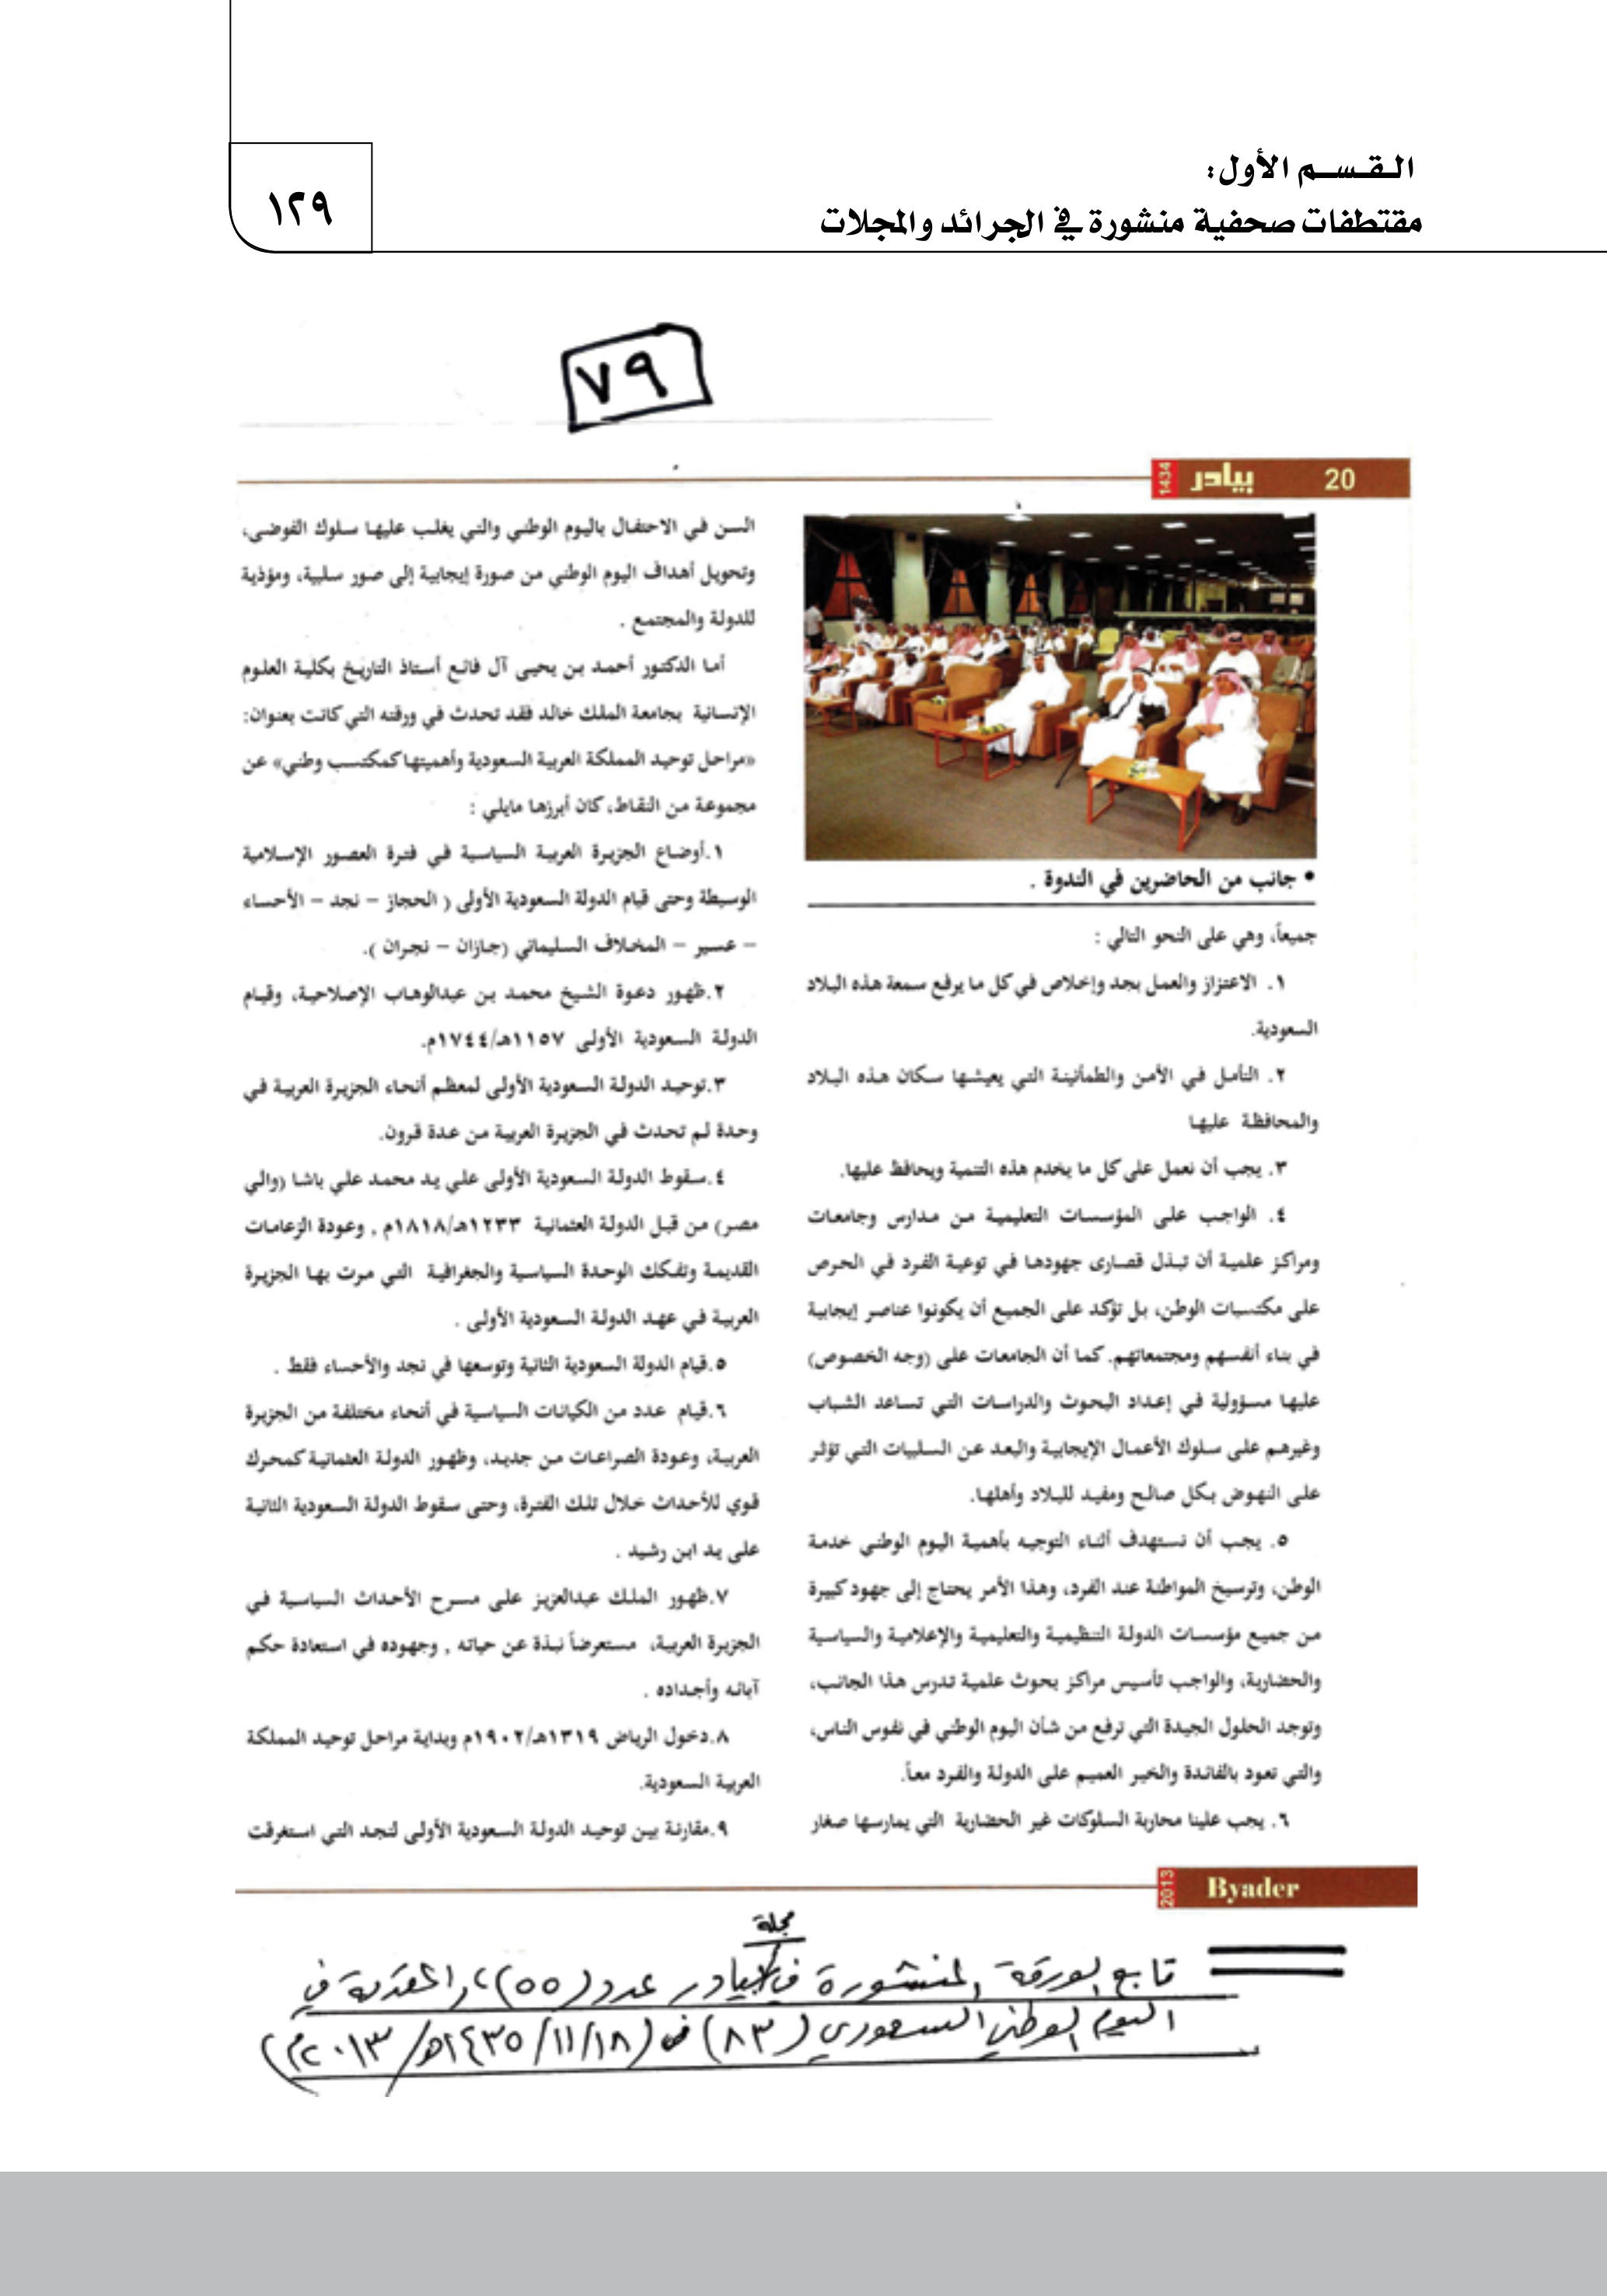 القسم الأول:
مقتطفات صحفية منشورة في الجرائد والمجلات
١٢٩
٧٩
20 بيادر 1434
• جانب من الحاضرين في الندوة .
جميعاً، وهي على النحو التالي :
١. الاعتزاز والعمل بجد وإخلاص في كل ما يرفع سمعة هذه البلاد
السعودية.
٢. التأمل في الأمن والطمأنينة التي يعيشها سكان هذه البلاد
والمحافظة عليها
٣. يجب أن نعمل على كل ما يخدم هذه التنمية ويحافظ عليها.
٤. الواجب على المؤسسات التعليمية من مدارس وجامعات
ومراكز علمية أن تبذل قصارى جهودها في توعية الفرد في الحرص
على مكتسبات الوطن، بل تؤكد على الجميع أن يكونوا عناصر إيجابية
في بناء أنفسهم ومجتمعاتهم. كما أن الجامعات على (وجه الخصوص)
عليها مسؤولية في إعداد البحوث والدراسات التي تساعد الشباب
وغيرهم على سلوك الأعمال الإيجابية والبعد عن السلبيات التي تؤثر
على النهوض بكل صالح ومفيد للبلاد وأهلها.
٥. يجب أن نستهدف أثناء التوجيه بأهمية اليوم الوطني خدمة
الوطن، وترسيخ المواطنة عند الفرد، وهذا الأمر يحتاج إلى جهود كبيرة
من جميع مؤسسات الدولة التنظيمية والتعليمية والإعلامية والسياسية
والحضارية، والواجب تأسيس مراكز بحوث علمية تدرس هذا الجانب،
وتوجد الحلول الجيدة التي ترفع من شأن اليوم الوطني في نفوس الناس،
والتي تعود بالفائدة والخير العميم على الدولة والفرد معاً.
٦. يجب علينا محاربة السلوكات غير الحضارية التي يمارسها صغار
السن في الاحتفال باليوم الوطني والتي يغلب عليها سلوك الفوضى،
وتحويل أهداف اليوم الوطني من صورة إيجابية إلى صور سلبية، ومؤذية
للدولة والمجتمع .
أما الدكتور أحمد بن يحيى آل فائع أستاذ التاريخ بكلية العلوم
الإنسانية بجامعة الملك خالد فقد تحدث في ورقته التي كانت بعنوان:
«مراحل توحيد المملكة العربية السعودية وأهميتها كمكتسب وطني» عن
مجموعة من النقاط، كان أبرزها مايلي :
١.أوضاع الجزيرة العربية السياسية في فترة العصور الإسلامية
الوسيطة وحتى قيام الدولة السعودية الأولى ( الحجاز – نجد – الأحساء
– عسير – المخلاف السليماني (جازان – نجران ).
٢.ظهور دعوة الشيخ محمد بن عبدالوهاب الإصلاحية، وقيام
الدولة السعودية الأولى ١١٥٧هـ/١٧٤٤م.
٣.توحيد الدولة السعودية الأولى لمعظم أنحاء الجزيرة العربية في
وحدة لم تحدث في الجزيرة العربية من عدة قرون.
٤.سقوط الدولة السعودية الأولى علي يد محمد علي باشا (والي
مصر) من قبل الدولة العثمانية ١٢٣٣هـ/١٨١٨م , وعودة الزعامات
القديمة وتفكك الوحدة السياسية والجغرافية التي مرت بها الجزيرة
العربية في عهد الدولة السعودية الأولى .
٥.قيام الدولة السعودية الثانية وتوسعها في نجد والأحساء فقط .
٦.قيام عدد من الكيانات السياسية في أنحاء مختلفة من الجزيرة
العربية، وعودة الصراعات من جديد، وظهور الدولة العثمانية كمحرك
قوي للأحداث خلال تلك الفترة، وحتى سقوط الدولة السعودية الثانية
على يد ابن رشيد .
٧.ظهور الملك عبدالعزيز على مسرح الأحداث السياسية في
الجزيرة العربية، مستعرضاً نبذة عن حياته , وجهوده في استعادة حكم
آبائه وأجداده .
٨.دخول الرياض ١٣١٩هـ/١٩٠٢م وبداية مراحل توحيد المملكة
العربية السعودية.
٩.مقارنة بين توحيد الدولة السعودية الأولى لنجد التي استغرقت
2013 Byader
مجلة
تابع الورقة المنشورة في بيادر عدد (٥٥)، المقدمة في
اليوم الوطني السعودي (٨٣) في (١٤٣٥/١١/١٨هـ/ ٢٠١٣م)